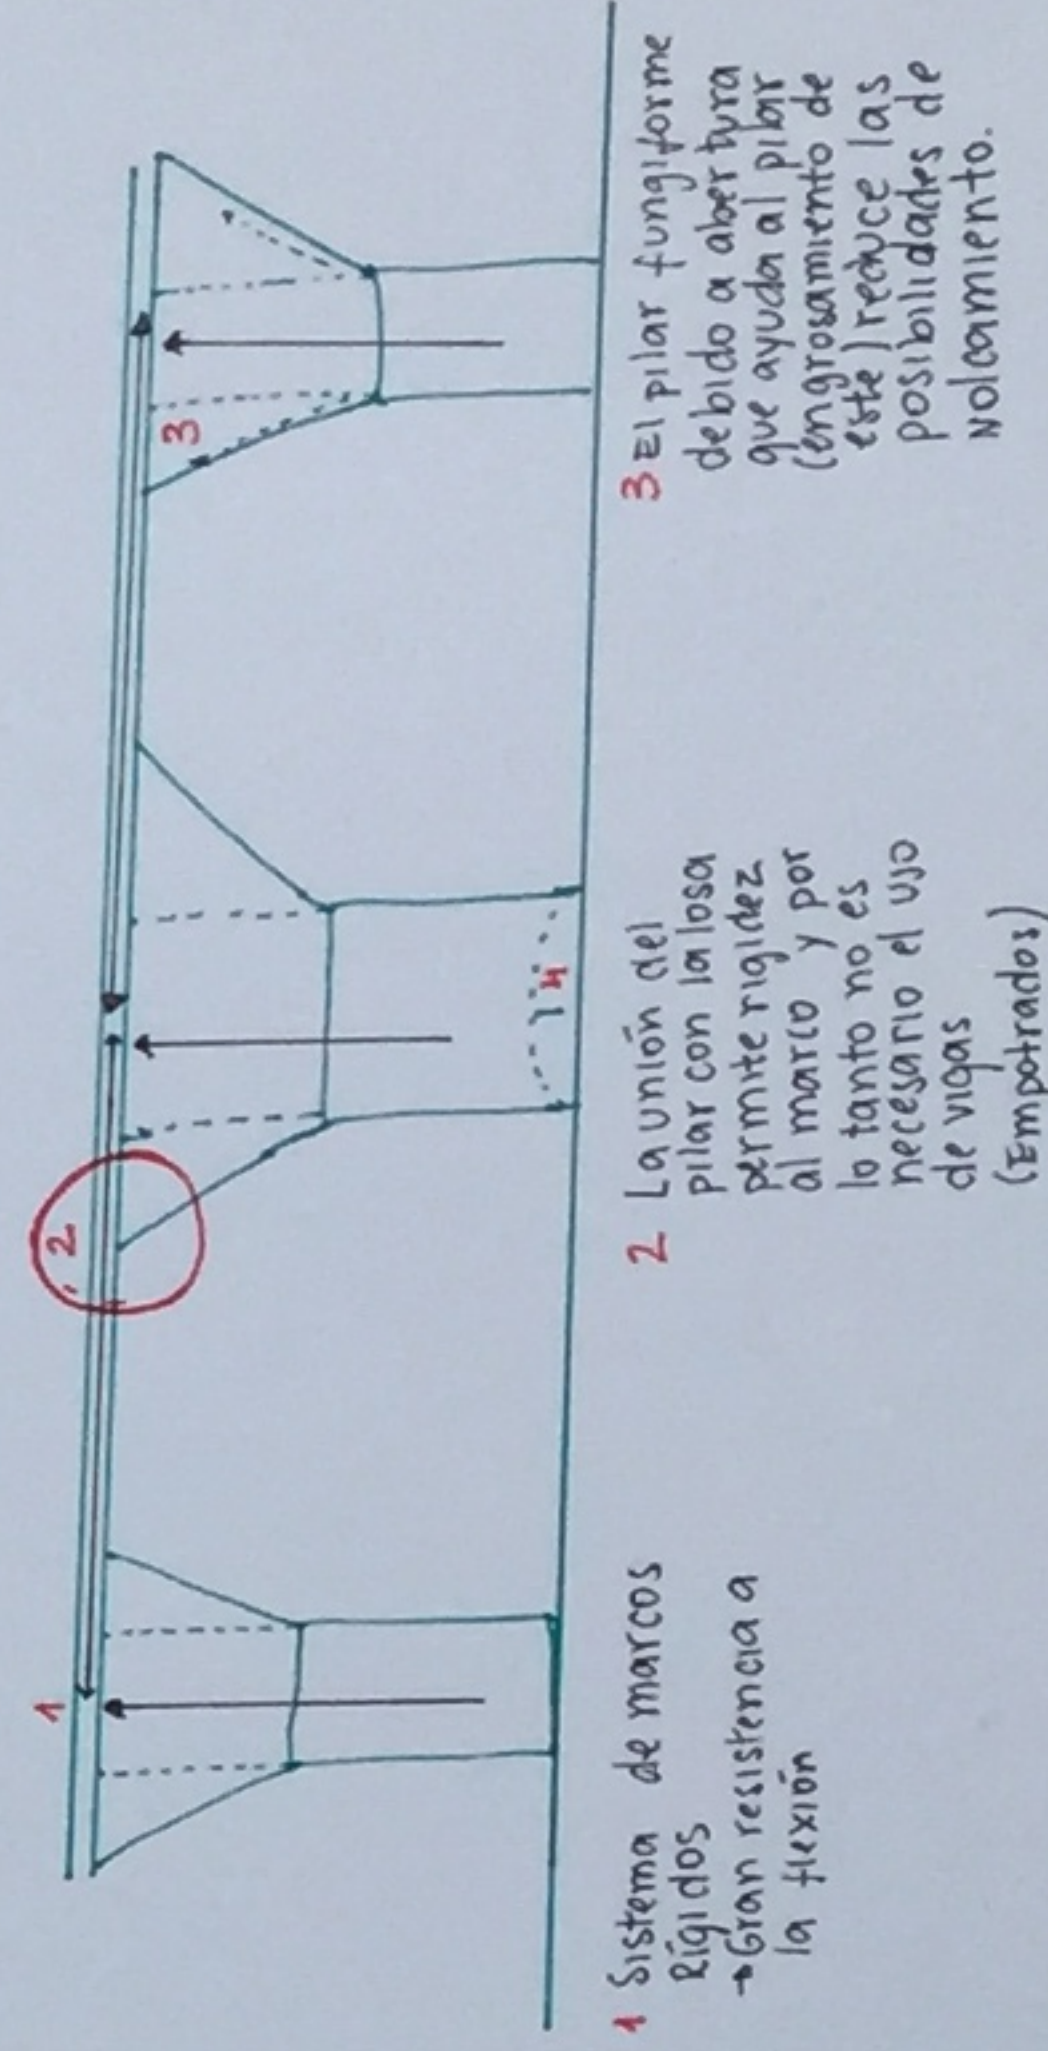 1
2
3
4
1 Sistema de marcos
Rígidos
→ Gran resistencia a
la flexión
2 La unión del
pilar con la losa
permite rigidez
al marco y por
lo tanto no es
necesario el uso
de vigas
(Empotrados)
3 El pilar fungiforme
debido a abertura
que ayuda al pilar
(engrosamiento de
este) reduce las
posibilidades de
volcamiento.